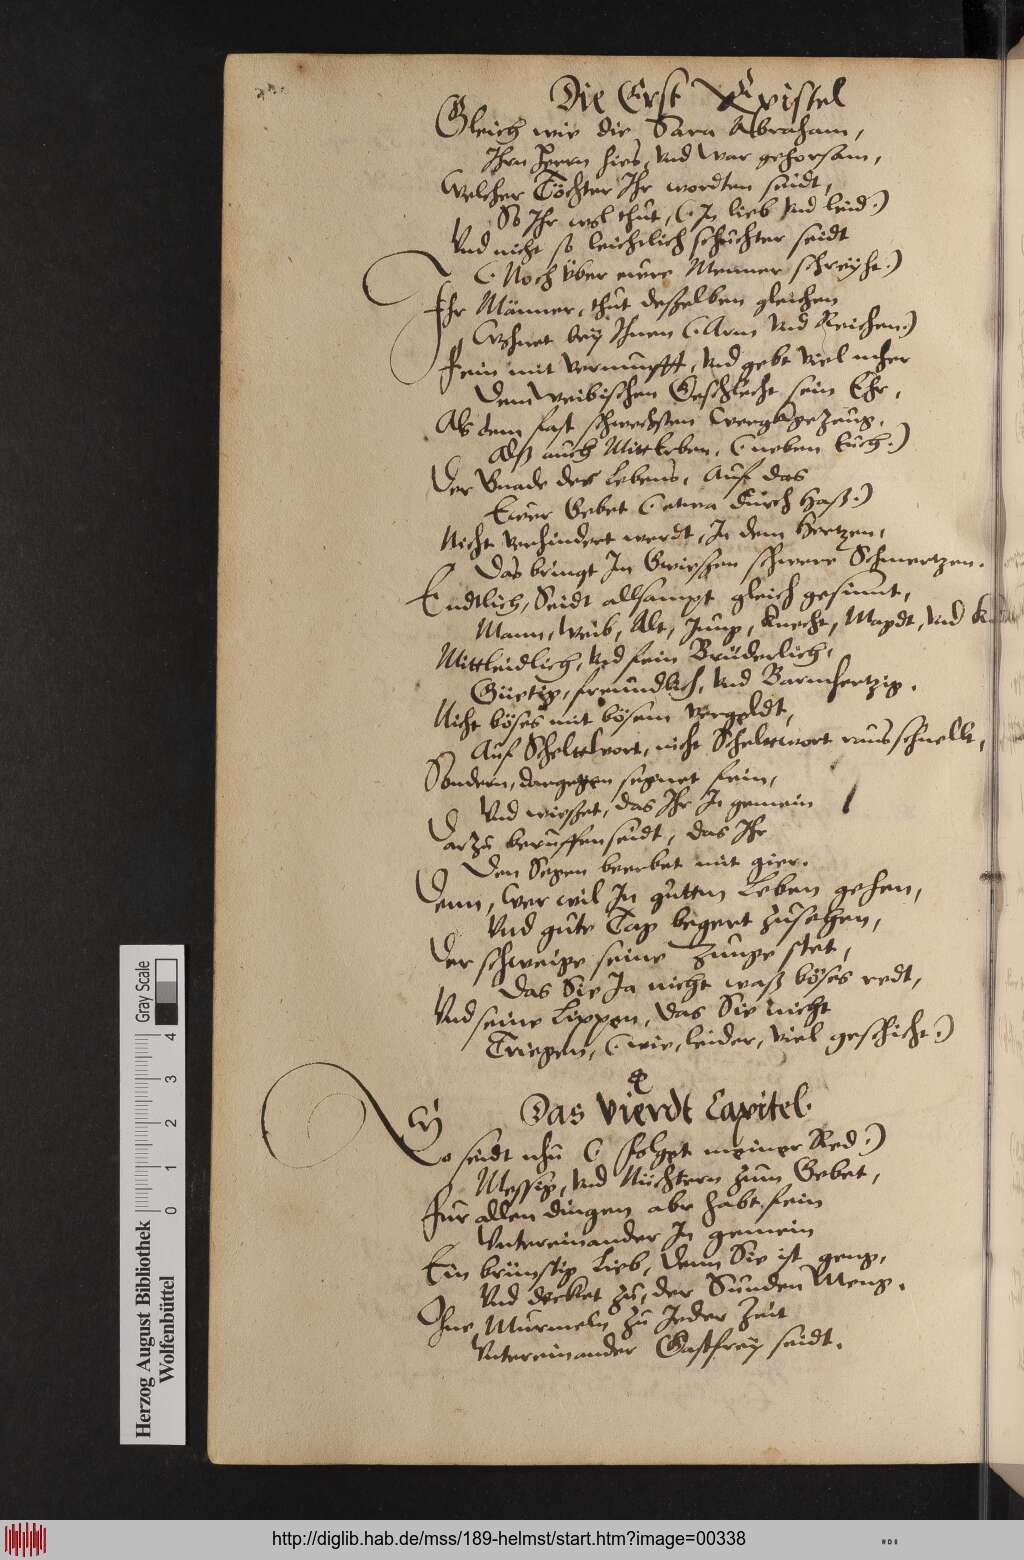 Die Erst Epistel
Gleich wie die Sara Abraham,
Ihrn Herrn hies, vnd war gehorsam,
Welcher Töchter Ihr wordten seidt,
So Ihr wol thut, (: In lieb vnd leid :)
Vnd nicht so leichtlich schüchter seidt
(: Noch über eure Menner schreyht :)
Ihr Männer, thut desselben gleichen
Wohnet bey Ihnen (: Arm vnd Reichen :)
Fein mit vernunfft, vnd gebt viel mher
Dem weibischen Geschlecht sein Ehr,
Als dem fast schwechsten wergkgezeug,
Alß auch Mitt Erben, (: neben Euch :)
Der Gnade des lebens, Auf das
Ewer Gebet (: etwa durch Haß :)
Nicht verhindert werdt, In dem Hertzen,
Das bringt In Gwissen schwere Schmertzen.
Endtlich, Seidt allsampt gleich gesinnt,
Mann, Weib, Alt, Jung, Knecht, Magdt, vnd
Mittleidlich, vnd fein Brüderlich,
Güetig, freundlich, vnd Barmhertzig.
Nicht böses mit bösem vergeldt,
Auf Scheltwort, nicht Scheltwort raus schnellt,
Sondern, dargegen segnet fein,
Vnd wisset, das Ihr In gemein
Darzu beruffen seidt, das Ihr
Den Segen beerbet mit gier.
Denn, Wer wil In guttem Leben gehen,
Vnd gute Tag begert zusehen,
Der schweige seine Zunge stet,
Das Sie Ja nicht waß böses redt,
Vnd seine Lippen, das Sie nicht
Triegen, (: wie, leider, viel geschicht :)
Das Vierdt Capitel.
So seidt nhu (: folget meiner Red :)
Messig, vnd Nüchtern zum Gebet,
Für allen dingen abr habt fein
Vntereinander In gemein
Ein brünstig Lieb, denn Sie ist geng,
Vnd decket zu, der Sunden Meng.
Ohne Murmeln zu Jeder Zeit
Vntereinander Gastfrey seidt.
Gray Scale
0 1 2 3 4
Herzog August Bibliothek
Wolfenbüttel
http://diglib.hab.de/mss/189-helmst/start.htm?image=00338